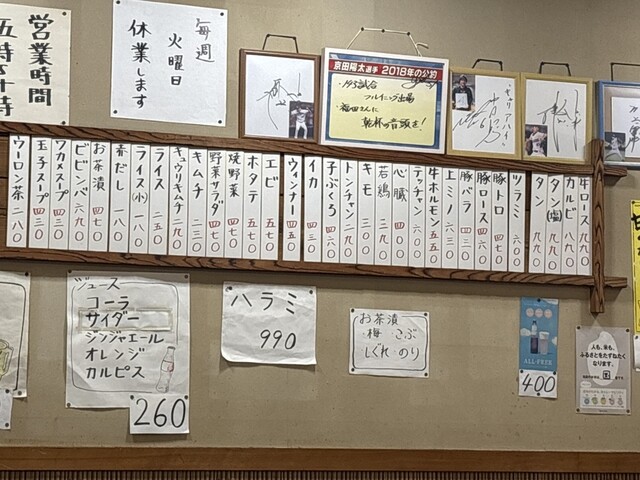 営業時間
毎週
火曜日
休業します
京田陽太選手 2018年の公約
・143試合
フルイニング出場
・福田さんに
乾杯の音頭を!
牛ロース 九九〇
カルビ 八九〇
タン(塩) 九九〇
タン 九九〇
ツラミ 六〇〇
豚トロ 四九〇
豚ロース 四六〇
豚バラ 四三〇
上ミノ 六三〇
牛ホルモン 五五〇
テッチャン 六〇〇
心臓 四三〇
若鶏 四三〇
キモ 三九〇
トンチャン 三九〇
子ぶくろ 四六〇
イカ 四三〇
ウィンナー 四五〇
エビ 五七〇
ホタテ 五七〇
焼野菜 四七〇
野菜サラダ 四七〇
キムチ 二三〇
キュウリキムチ 二九〇
ライス 二五〇
ライス(小) 一八〇
赤だし 一八〇
お茶漬 四七〇
ビビンバ 六九〇
ワカスープ 四三〇
玉子スープ 四三〇
ウーロン茶 二八〇
ジュース
コーラ
サイダー
ジンジャエール
オレンジ
カルピス
260
ハラミ
990
お茶漬
梅・こぶ
しぐれ・のり
ALL-FREE
400
人も、米も、
ふるさとをたずねたく
なります。